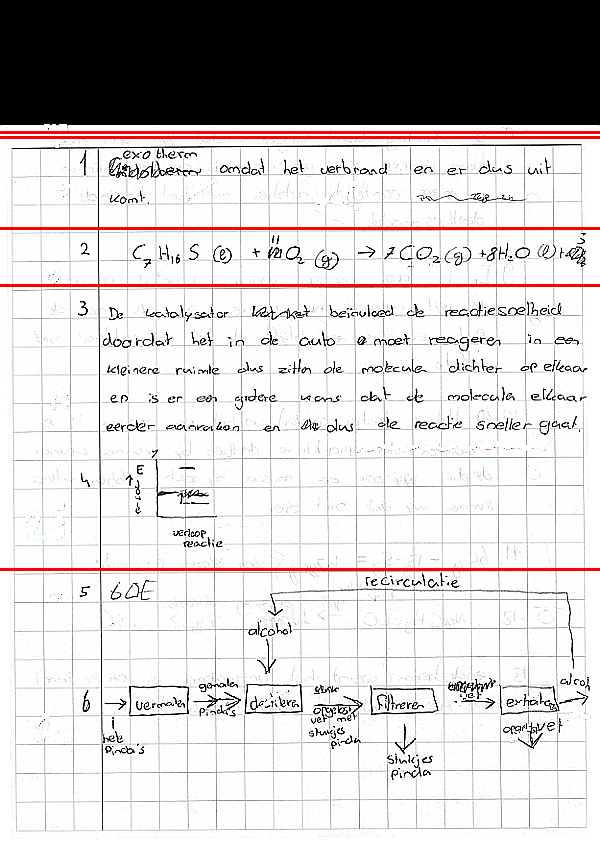 1 exotherm omdat het verbrand en er dus uit
komt.
2 C7H16S (l) + 11 O2 (g) → 7CO2 (g) + 8H2O (l) +
3 De katalysator beïnvloed de reactiesnelheid
doordat het in de auto moet reageren in een
kleinere ruimte dus zitten de molecule dichter op elkaar
en is er een grotere kans dat de molecule elkaar
eerder aanraken en dus de reactie sneller gaat.
4 E
verloop
reactie
5 6 DE
recirculatie
alcohol
6 → vermalen
gemalen
pinda's
hele
pinda's
opgelost
vet met
stukjes
pinda
filtreren
stukjes
pinda
vet
alcohol
vet